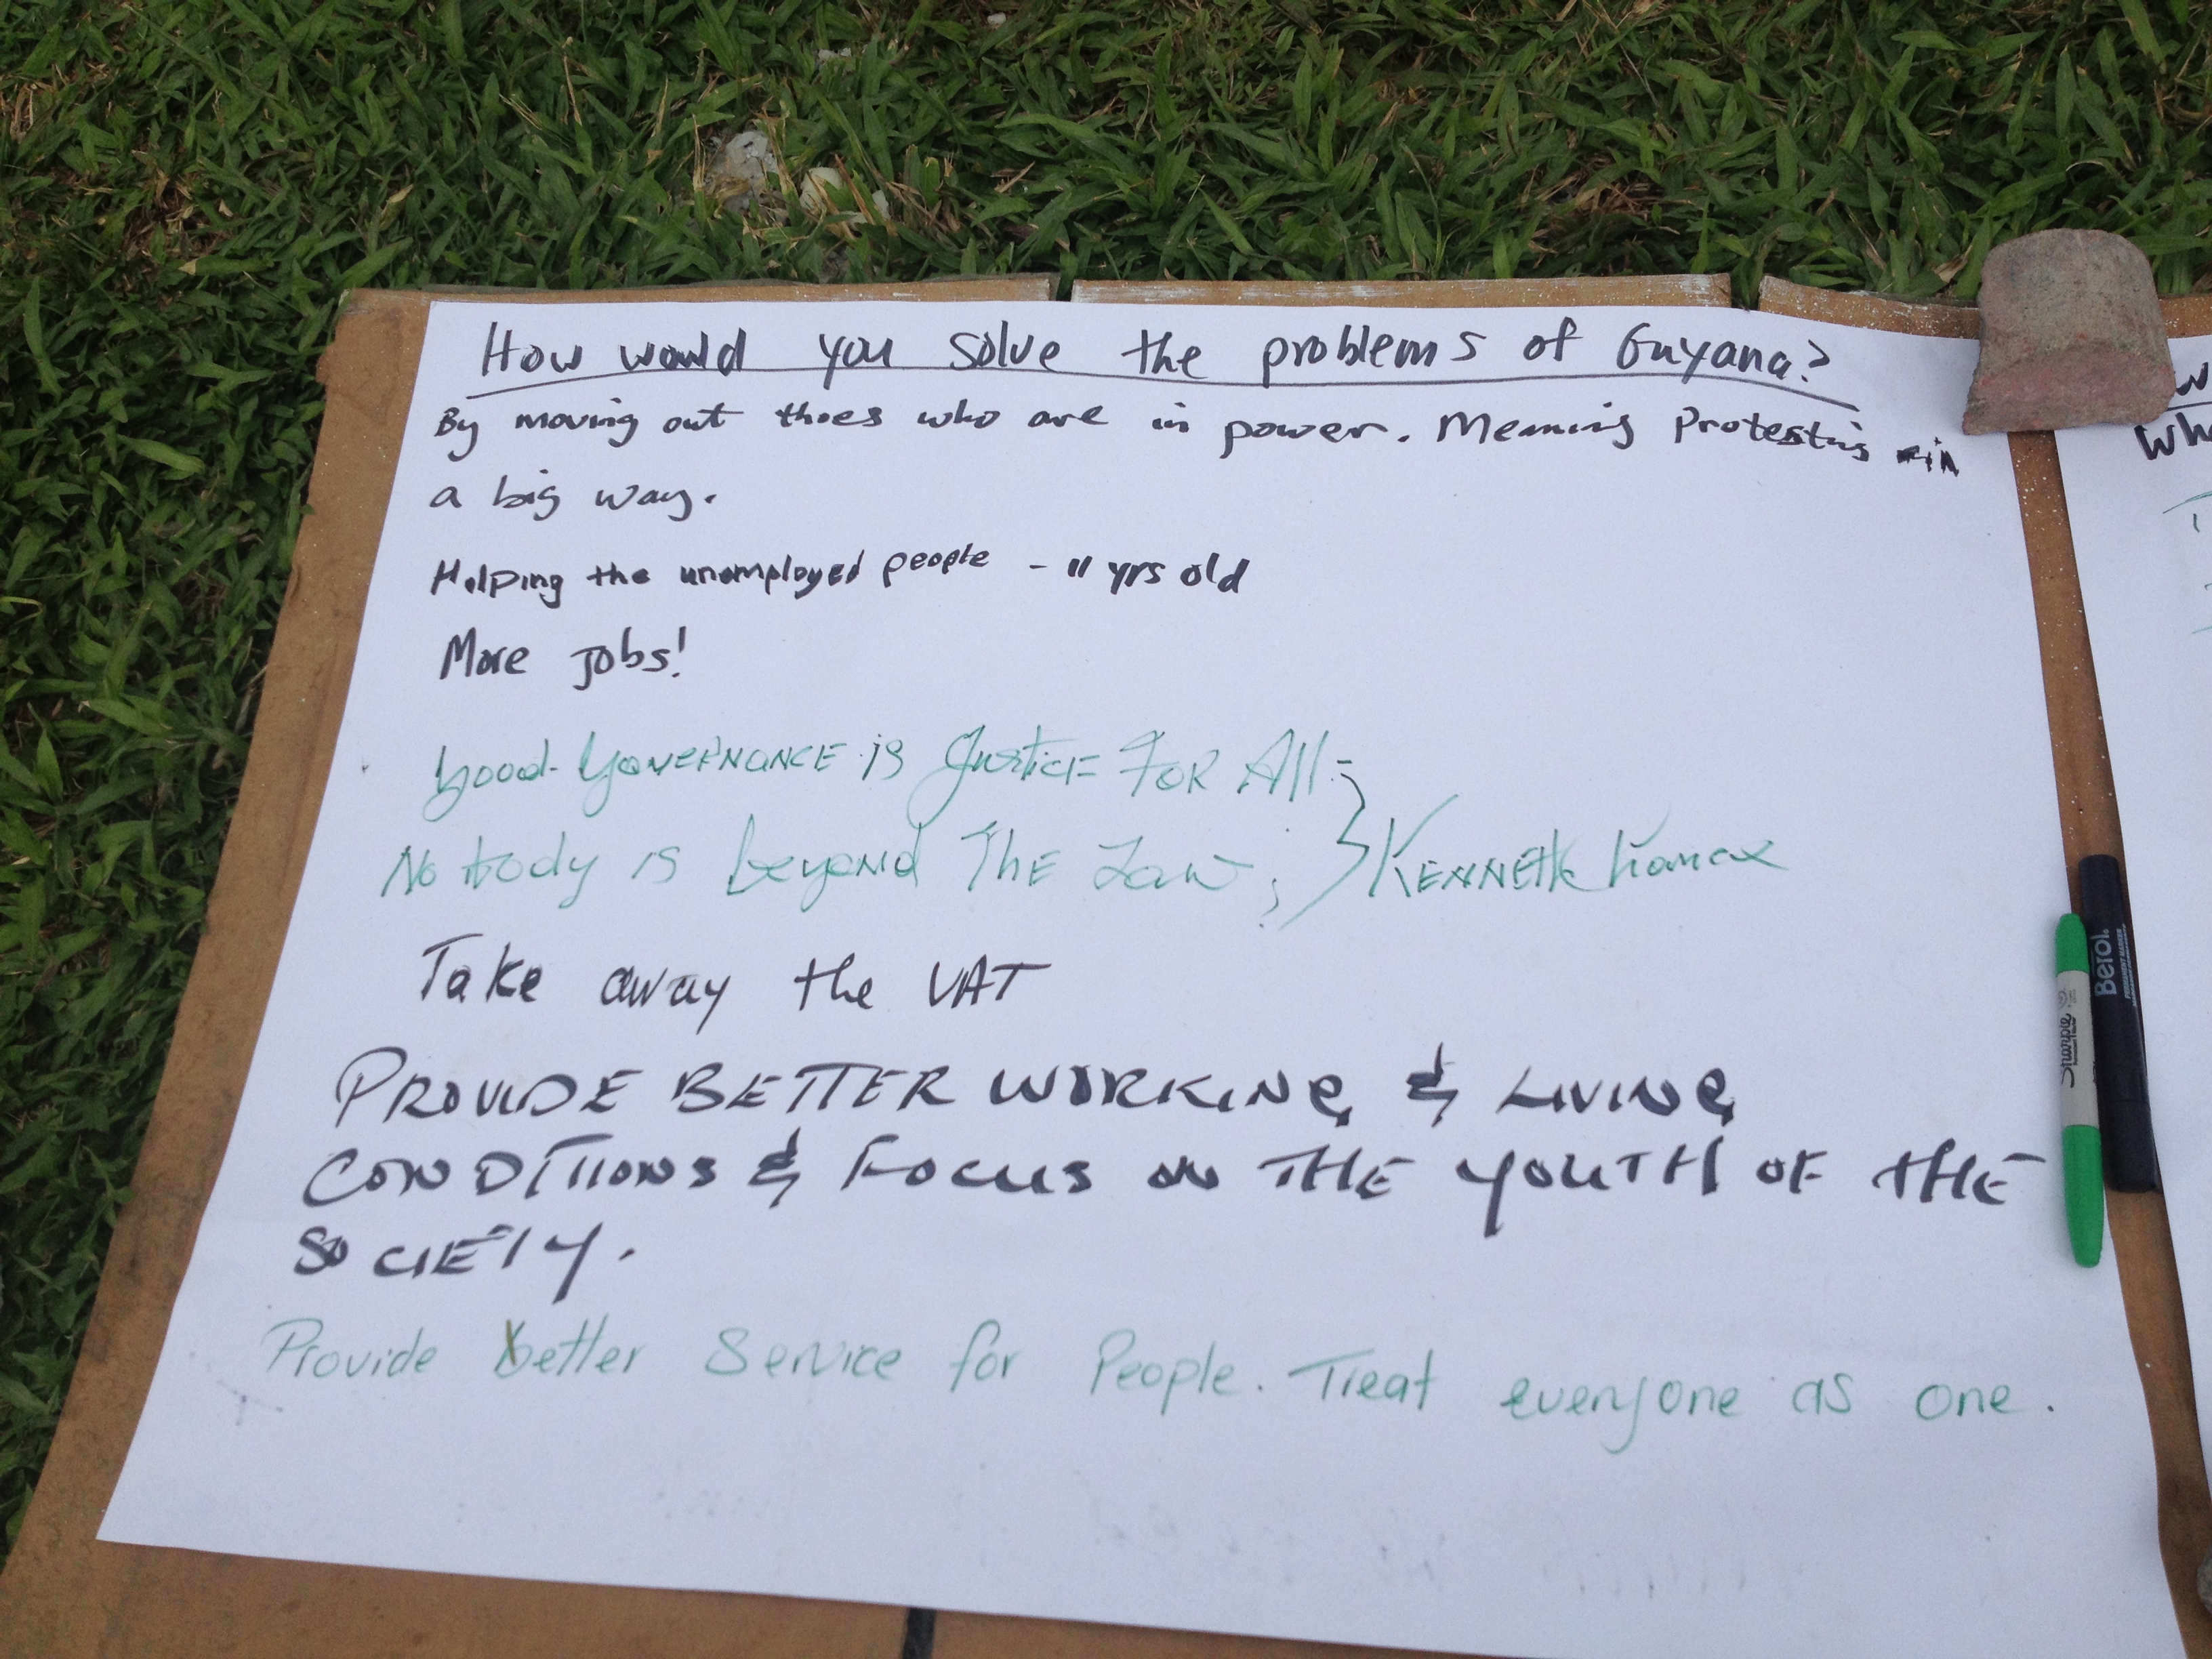 How would you solve the problems of Guyana?
By moving out thoes who are in power. Meaning Protesting in
a big way.
Helping the unemployed people - 11 yrs old
More jobs!
Good Governance is Justice For All -
Nobody is beyond The Law;
KENNETH
Take away the VAT
PROVIDE BETTER WORKING & LIVING
CONDITIONS & FOCUS ON THE YOUTH OF THE
SOCIETY.
Provide better Service for People. Treat everyone as one.
Sharpie
Berol
PERMANENT MARKER